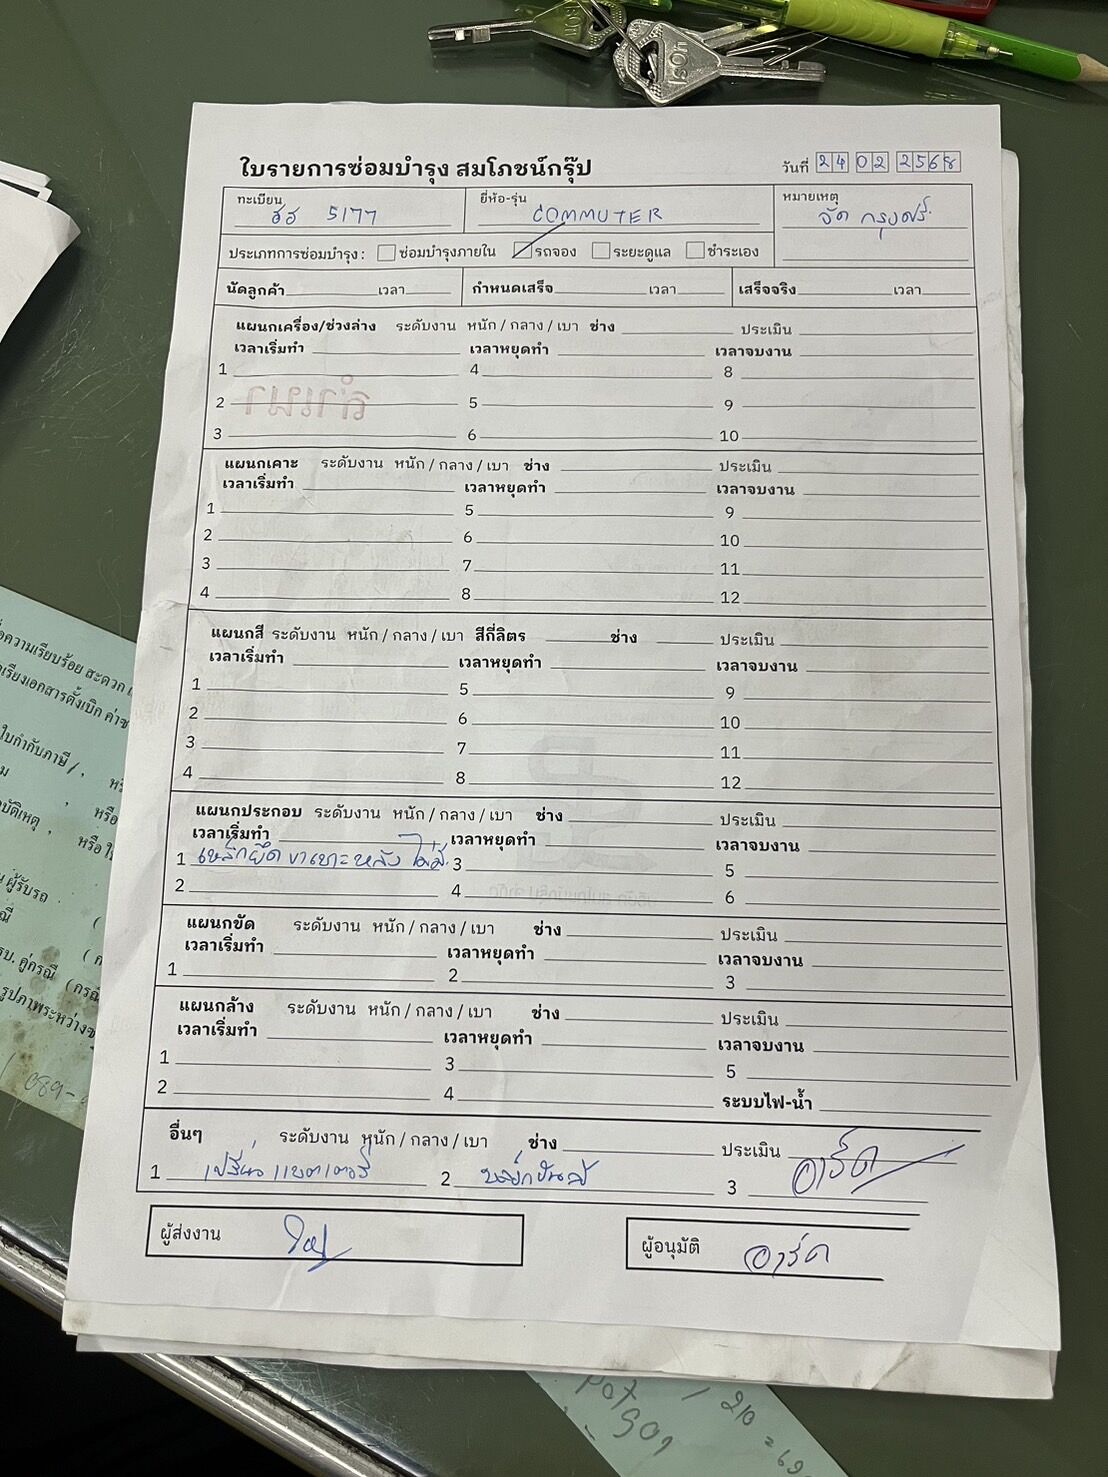 ใบรายการซ่อมบำรุง สมโภชน์กรุ๊ป
วันที่ 24 02 2568
ทะเบียน ฮฮ 5177 ยี่ห้อ-รุ่น COMMUTER หมายเหตุ
ประเภทการซ่อมบำรุง : ซ่อมบำรุงภายใน รถจอง ระยะดูแล ชำระเอง
นัดลูกค้า เวลา กำหนดเสร็จ เวลา เสร็จจริง เวลา
แผนกเครื่อง/ช่วงล่าง ระดับงาน หนัก / กลาง / เบา ช่าง ประเมิน
เวลาเริ่มทำ เวลาหยุดทำ เวลาจบงาน
1 4 8
2 5 9
สำเนา
3 6 10
แผนกเคาะ ระดับงาน หนัก / กลาง / เบา ช่าง ประเมิน
เวลาเริ่มทำ เวลาหยุดทำ เวลาจบงาน
1 5 9
2 6 10
3 7 11
4 8 12
แผนกสี ระดับงาน หนัก / กลาง / เบา สีกี่ลิตร ช่าง ประเมิน
เวลาเริ่มทำ เวลาหยุดทำ เวลาจบงาน
1 5 9
2 6 10
3 7 11
4 8 12
แผนกประกอบ ระดับงาน หนัก / กลาง / เบา ช่าง ประเมิน
เวลาเริ่มทำ เวลาหยุดทำ เวลาจบงาน
1 เหล็กยึด ขาเบาะหลัง ไม่มี 3 5
2 4 6
แผนกขัด ระดับงาน หนัก / กลาง / เบา ช่าง ประเมิน
เวลาเริ่มทำ เวลาหยุดทำ เวลาจบงาน
1 2 3
แผนกล้าง ระดับงาน หนัก / กลาง / เบา ช่าง ประเมิน
เวลาเริ่มทำ เวลาหยุดทำ เวลาจบงาน
1 3 5
2 4 ระบบไฟ-น้ำ
อื่นๆ ระดับงาน หนัก / กลาง / เบา ช่าง ประเมิน อาร์ต
1 เปลี่ยน แบตเตอรี่ 2 3
ผู้ส่งงาน
ผู้อนุมัติ อาร์ต
ความเรียบร้อย สะดวก
เรียงเอกสารตั้งเบิก
ใบกำกับภาษี
ผู้รับรถ
คู่กรณี
รูปภาพระหว่าง
089-